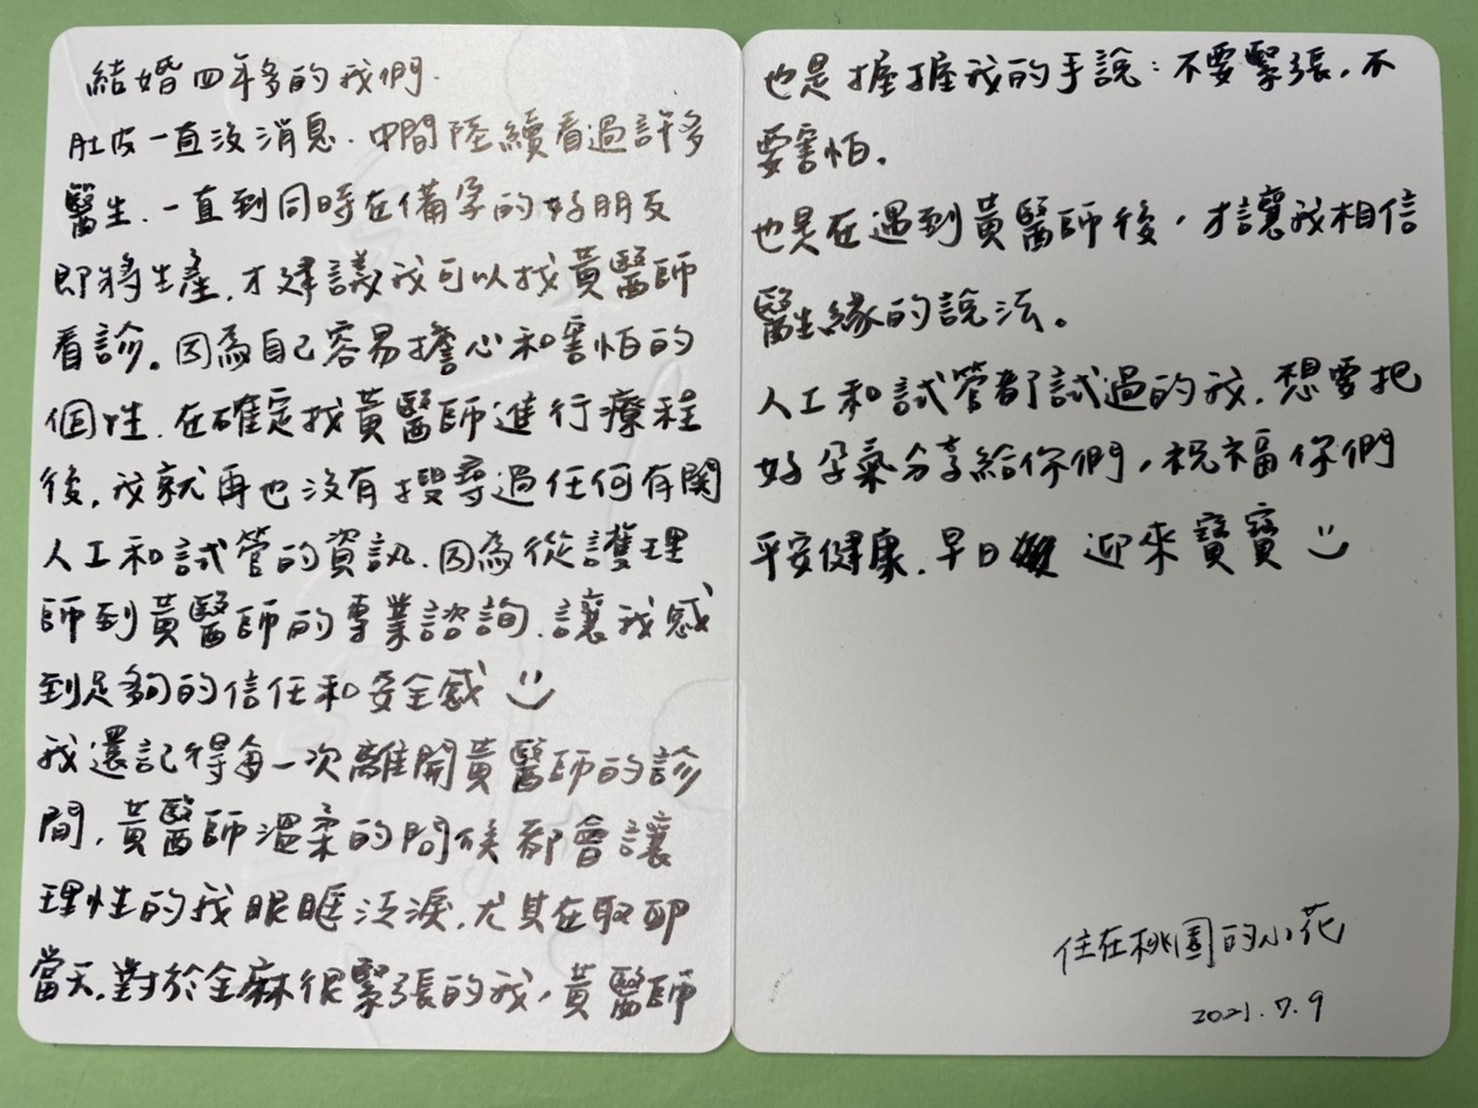 結婚四年多的我們.
肚皮一直沒消息.中間陸續看過許多
醫生.一直到同時在備孕的好朋友
即將生產.才建議我可以找黃醫師
看診。因為自己容易擔心和害怕的
個性.在確定找黃醫師進行療程
後.我就再也沒有搜尋過任何有關
人工和試管的資訊.因為從護理
師到黃醫師的專業諮詢.讓我感
到足夠的信任和安全感 :)
我還記得每一次離開黃醫師的診
間,黃醫師溫柔的問候都會讓
理性的我眼眶泛淚.尤其在取卵
當天.對於全麻很緊張的我,黃醫師
也是握握我的手說:不要緊張,不
要害怕。
也是在遇到黃醫師後,才讓我相信
醫生緣的說法。
人工和試管都試過的我.想要把
好孕氣分享給你們,祝福你們
平安健康.早日 迎來寶寶 :)
住在桃園的小花
2021.7.9